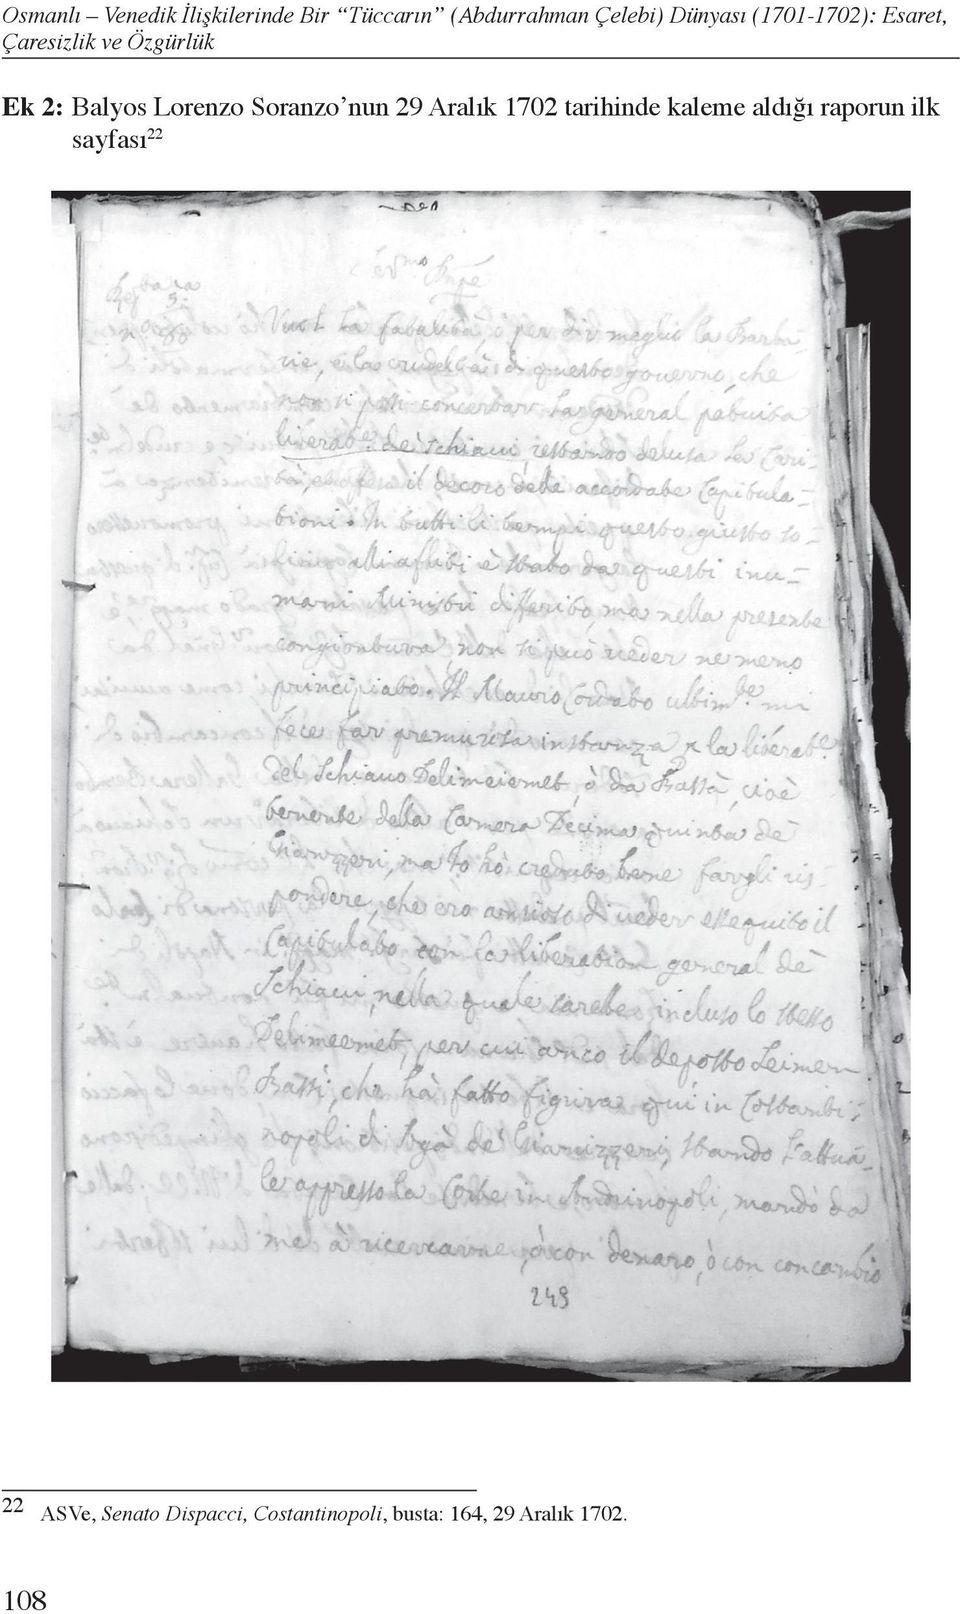 Osmanlı – Venedik İlişkilerinde Bir “Tüccarın” (Abdurrahman Çelebi) Dünyası (1701-1702): Esaret,
Çaresizlik ve Özgürlük
Ek 2: Balyos Lorenzo Soranzo’nun 29 Aralık 1702 tarihinde kaleme aldığı raporun ilk
sayfası22
Ser.mo Prñpe
Vuol la fatalità, ò per dir meglio la Barba-
rie, e la crudeltà di questo governo, che
non si possi concertar la general patuita
liberat.e de schiavi, restando delusa la Cari-
tà, et offeso il decoro delle accordate Capitula-
tioni. In tutti li tempi questo giusto so-
alli aflitti è stato da questi inu-
mani Ministri differito, ma nella presente
congiontura, non si può veder ne meno
principiato. Il Mauro Cordato ultim.te mi
fece far premurosa instanza la liberat.e
del Schiavo Delimeiemet, ò da Bassà, cioè
tenente della Camera Decima quinta de
Gianizzeri, ma Io hò creduto bene fargli ris-
pondere, che ero ansioso di veder essequito il
Capitulato con la liberation general de
Schiavi, nella quale sarebe incluso lo stesso
Delimeemet, per cui anco il deposto Seimen
Bassi, che hà fatto figura qui in Costanti-
nopoli di Agà de Gianizzeri, stando l'attua-
le appresso la Corte in Andrinopoli, mandò da
me à ricercarne, ò con denaro, ò con concambio
249
22 ASVe, Senato Dispacci, Costantinopoli, busta: 164, 29 Aralık 1702.
108